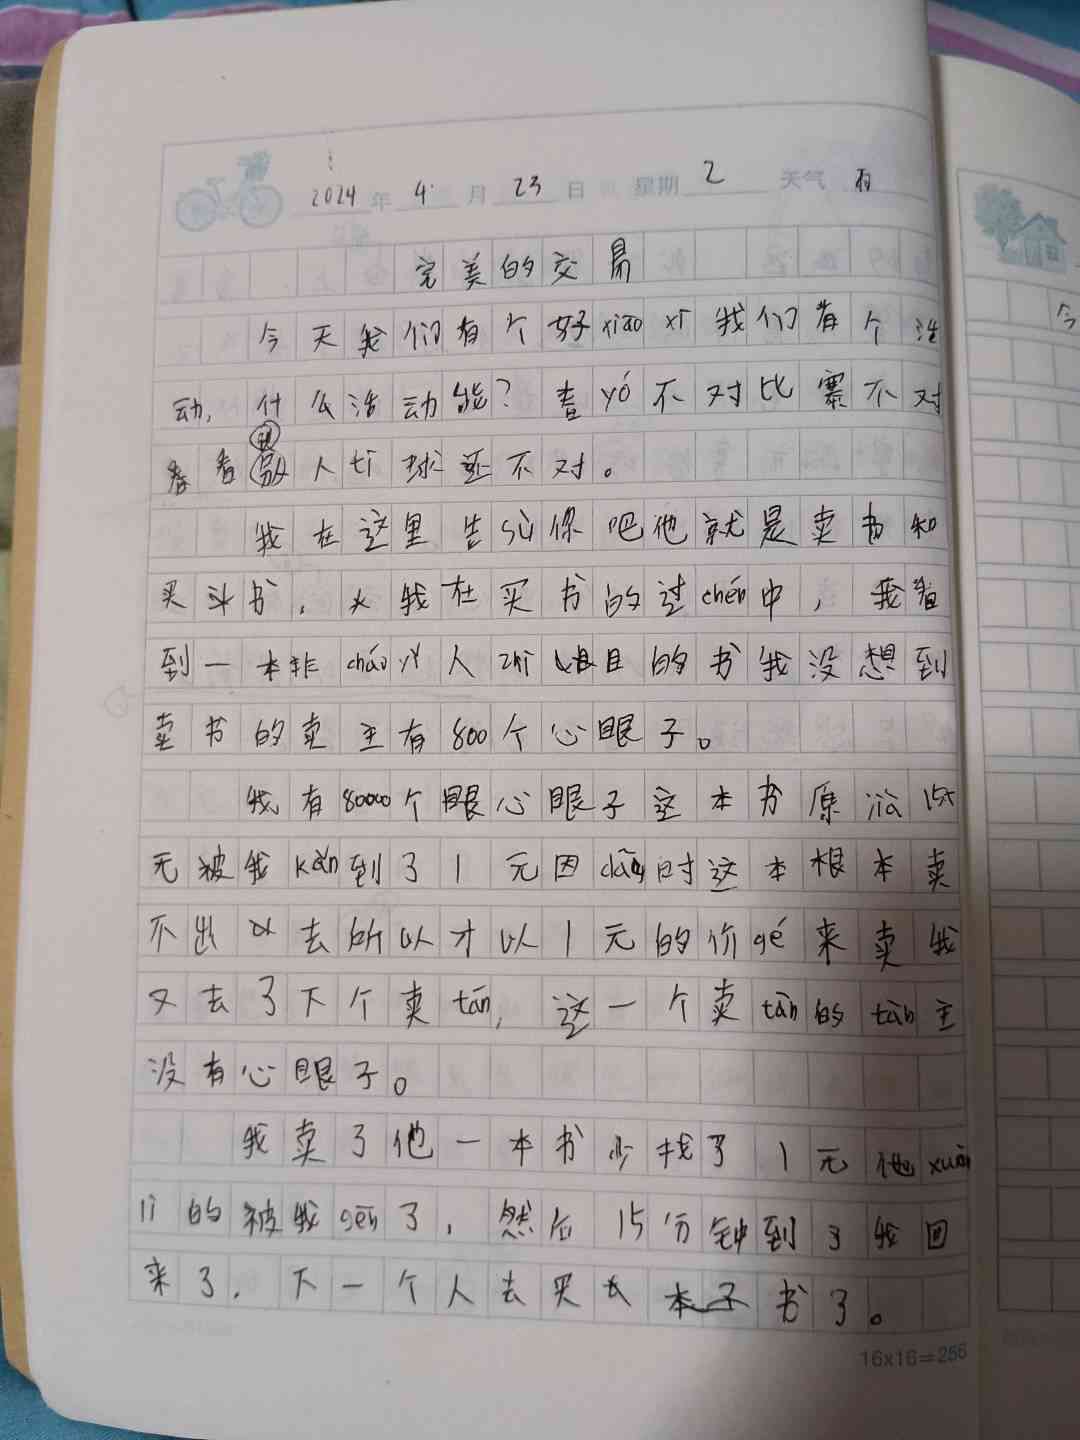 2024年4月23日 星期2 天气
完美的交易
今天我们有个好xiāo xi我们有个活
动,什么活动能?春yó不对比赛不对
看看人tī球还不对。
我在这里告sù你吧他就是卖书和
买书,我在买书的过chén中,我看
到一本非cháo yǐ人zhī目的书我没想到
卖书的卖主有800个心眼子。
我有80000个心眼子这本书原价15
元被我kǎn到了1元因dāng时这本根本卖
不出去所以才以1元的价gé来卖我
又去了下个卖tān,这一个卖tān的tān主
没有心眼子。
我卖了他一本书少找了1元他xuān
lì的被我gěn了,然后15分钟到了我回
来了,下一个人去买本子书了。
16x16=256
今